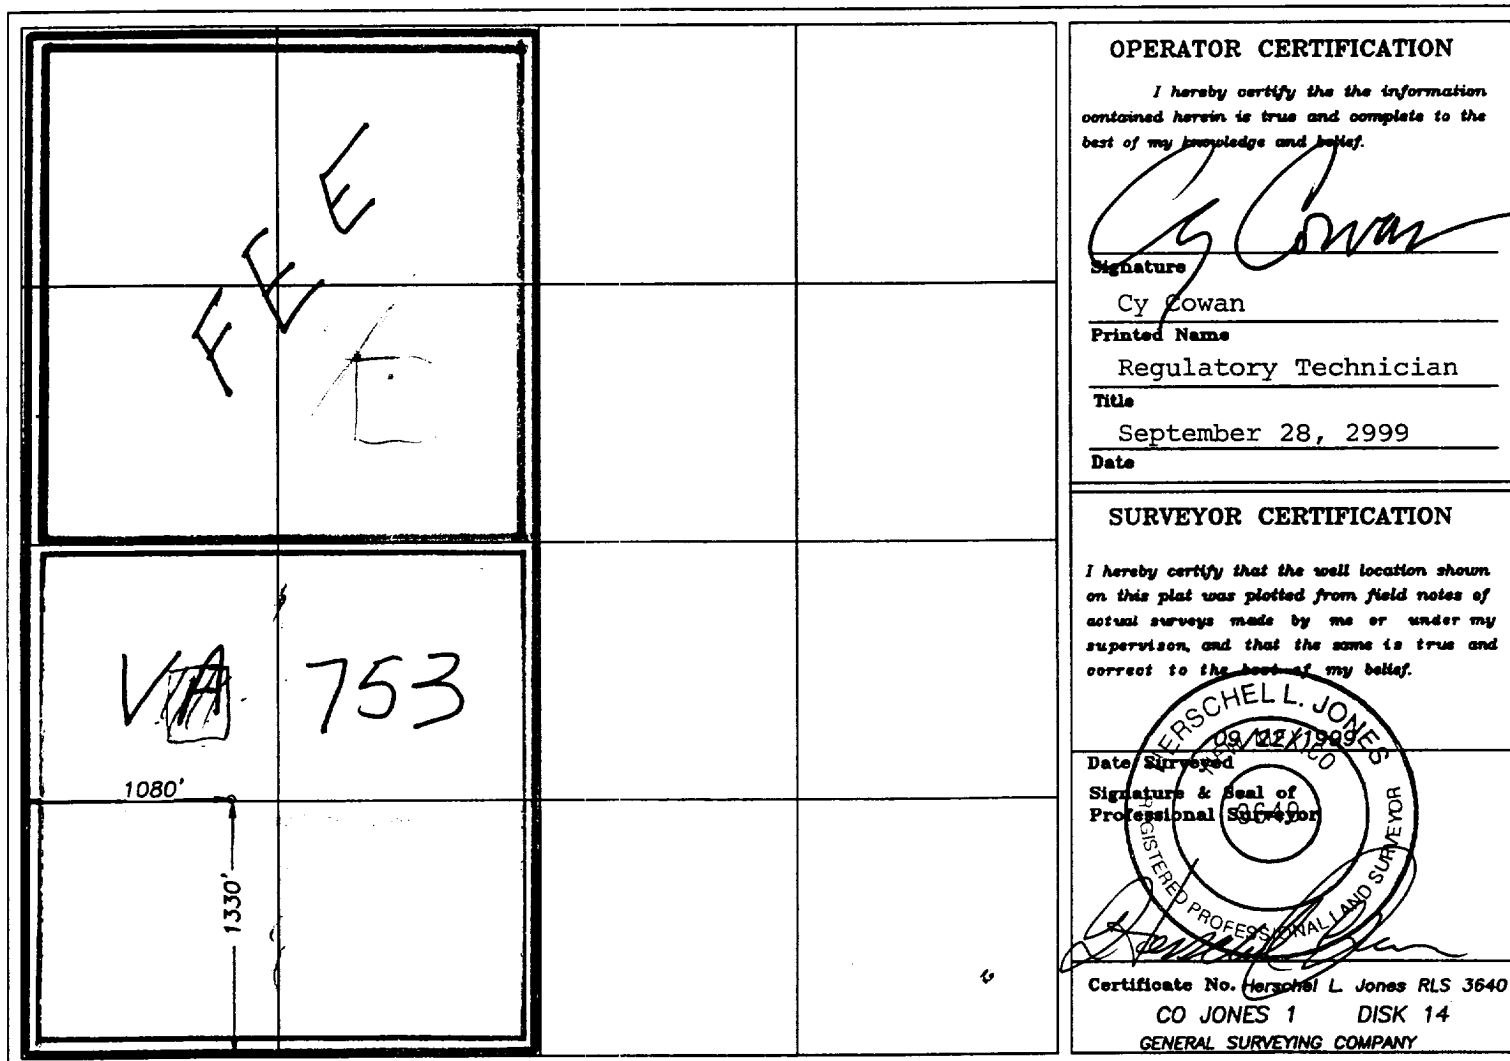 FEE
VA 753
1080'
1330'
OPERATOR CERTIFICATION
I hereby certify the the information
contained herein is true and complete to the
best of my knowledge and belief.
Cy Cowan
Signature
Cy Cowan
Printed Name
Regulatory Technician
Title
September 28, 2999
Date
SURVEYOR CERTIFICATION
I hereby certify that the well location shown
on this plat was plotted from field notes of
actual surveys made by me or under my
supervison, and that the same is true and
correct to the best of my belief.
HERSCHEL L. JONES
NEW MEXICO
3640
REGISTERED PROFESSIONAL LAND SURVEYOR
09/22/1999
Date Surveyed
Signature & Seal of
Professional Surveyor
Certificate No. Herschel L. Jones RLS 3640
CO JONES 1 DISK 14
GENERAL SURVEYING COMPANY